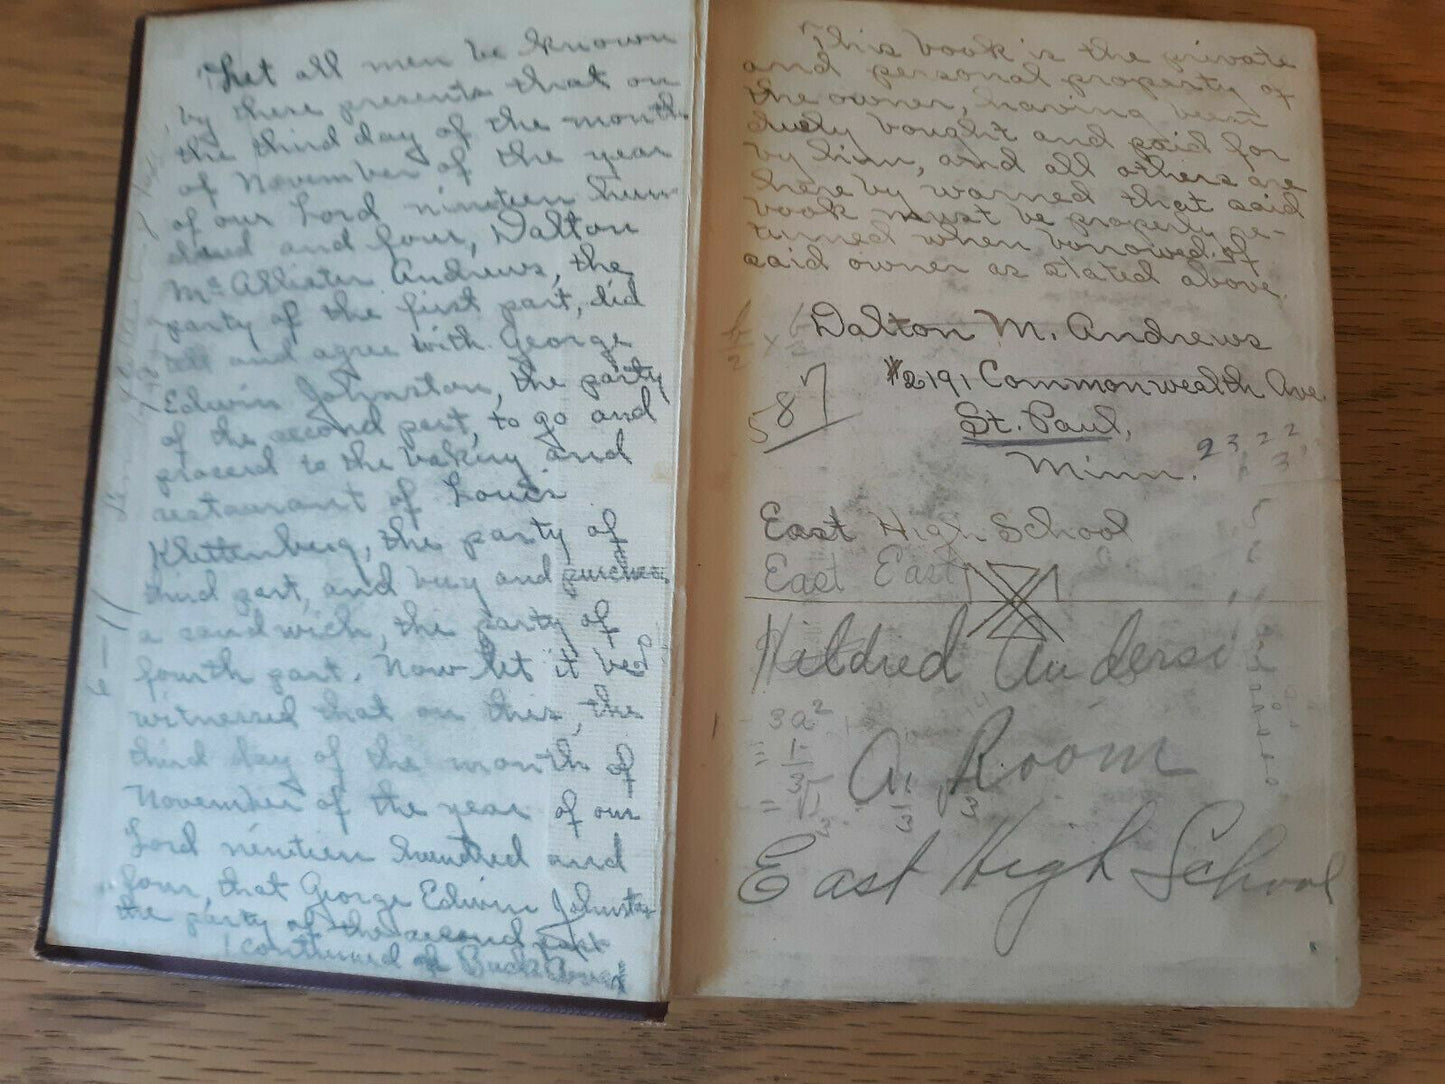 That all men be known
by these presents that on
the third day of the month
of November of the year
of our Lord nineteen hun
dred and four, Dalton
Mc Allister Andrews, the
party of the first part, did
and agree with George
Edwin Johnston, the party
of the second part, to go and
proceed to the bakery and
restaurant of Louis
Klittenberg, the party of
third part, and buy and
a sandwich, the party of
fourth part. Now let it be
witnessed that on this, the
third day of the month of
November of the year of our
Lord nineteen hundred and
four, that George Edwin Johnston
the party of the second part
(continued
This book is the private
and personal property of
the owner, having been
duly bought and paid for
by him, and all others are
here by warned that said
book must be properly re-
turned when borrowed of
said owner as stated above.
Dalton M. Andrews
#2191 Commonwealth Ave.
St. Paul,
Minn.
587
East High School
East East
Hildred Anderso
3a²
A. Room
East High School